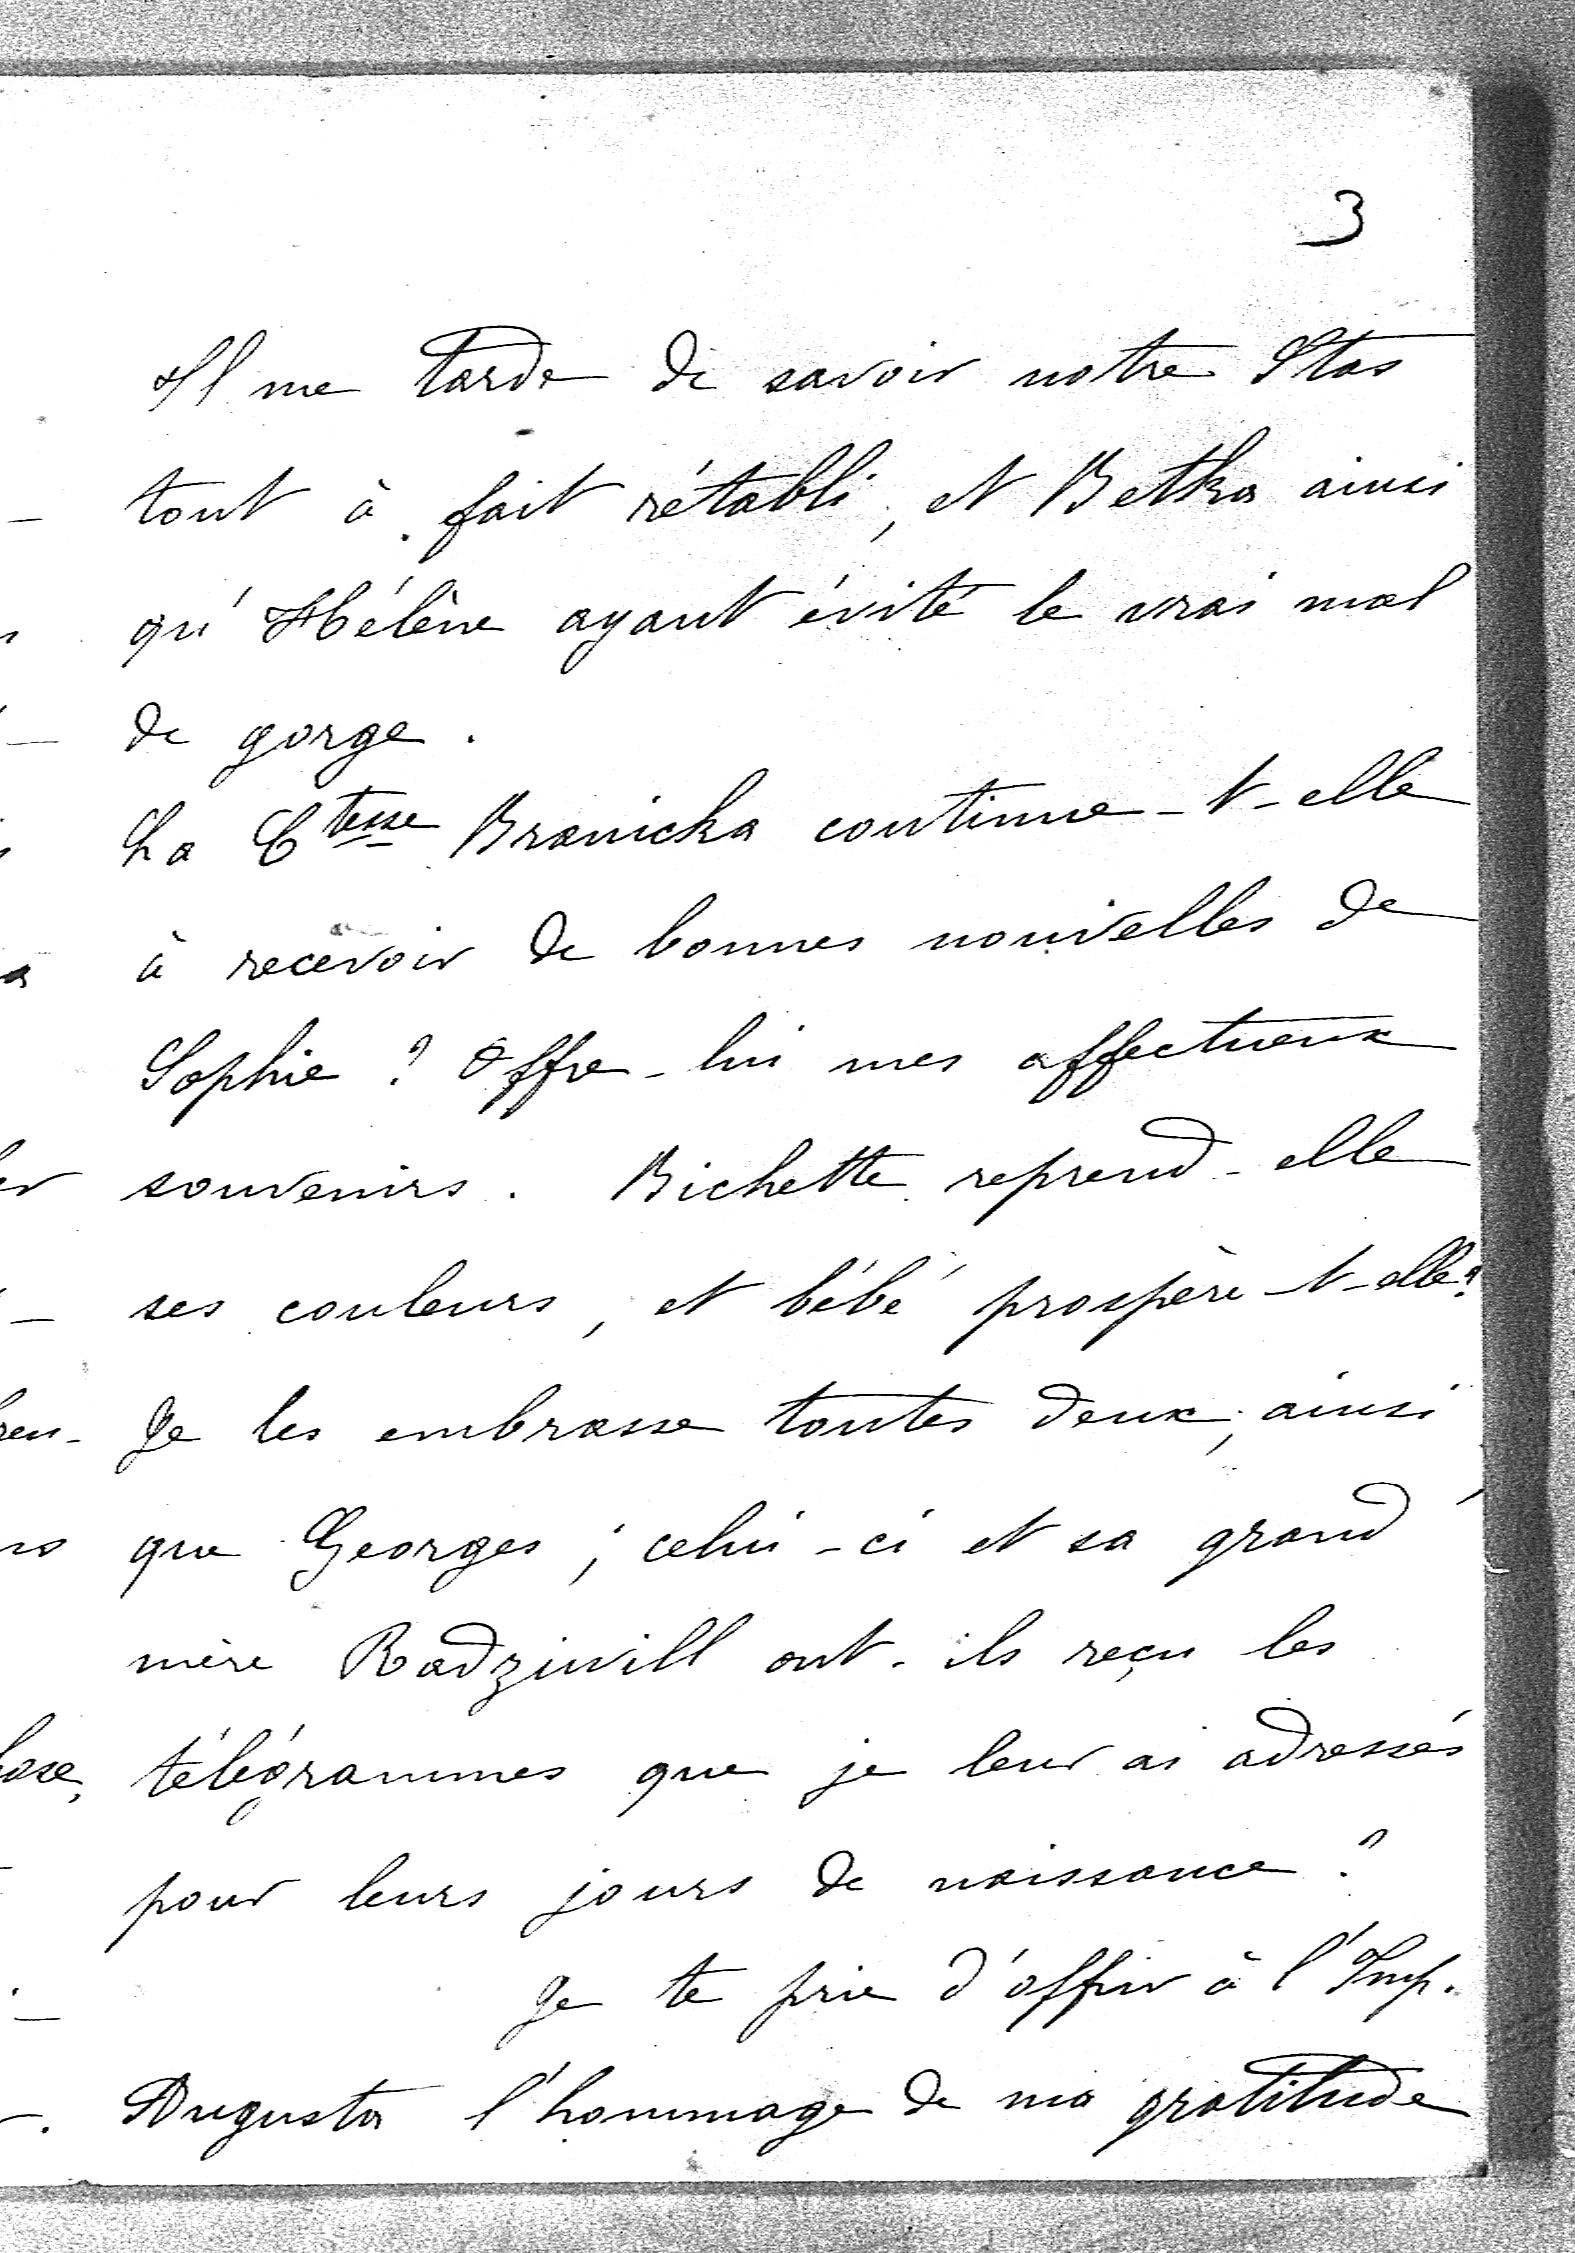 3
Il me tarde de savoir notre Stas
tout à fait rétabli, et Betka ainsi
qu'Hélène ayant évité le vrai mal
de gorge.
La Ctesse Branicka continue-t-elle
à recevoir de bonnes nouvelles de
Sophie ? Offre-lui mes affectueux
souvenirs. Bichette reprend-elle
ses couleurs, et bébé prospère-t-elle ?
Je les embrasse toutes deux, ainsi
que Georges ; celui-ci et sa grand'
mère Radziwill ont-ils reçu les
télégrammes que je leur ai adressés
pour leurs jours de naissance ?
Je te prie d'offrir à l'Imp.
Augusta l'hommage de ma gratitude